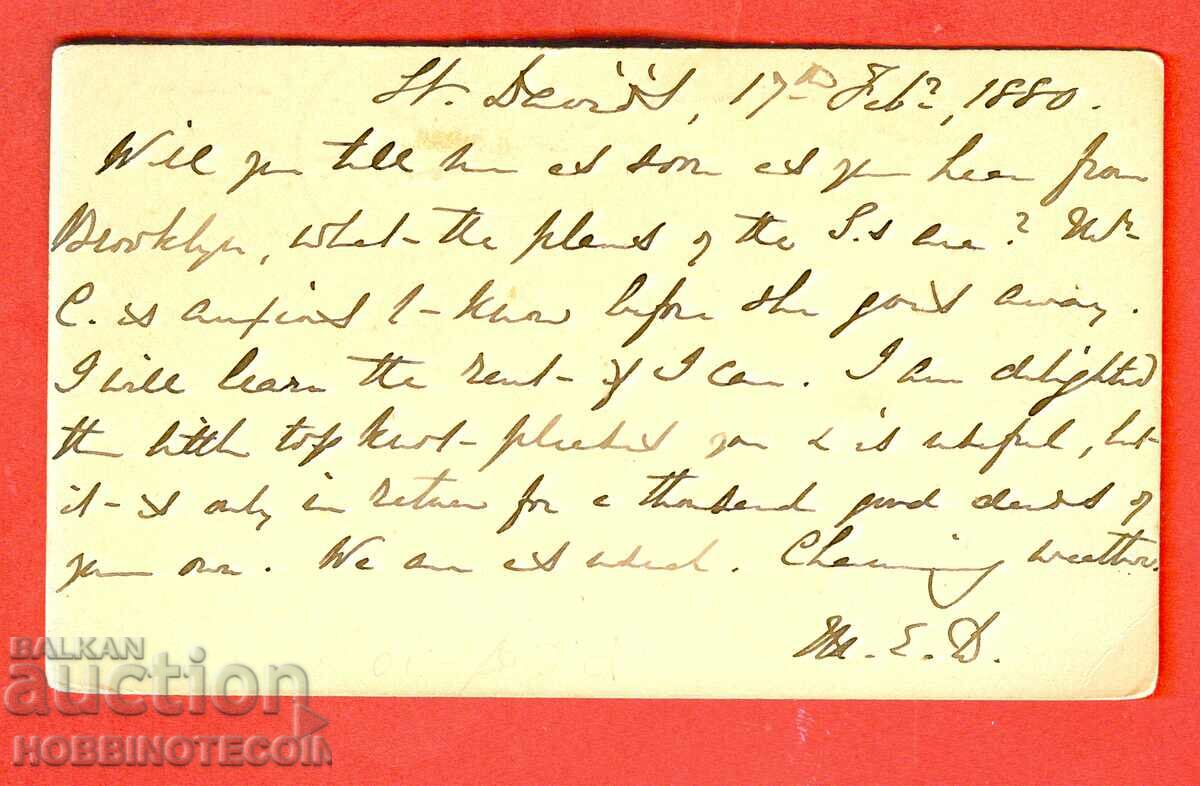 St. David's, 17th Feby, 1880.
Will you tell me as soon as you hear from
Brooklyn, what the plans of the S.s are? Mrs
C. is anxious to know before she goes away.
I will learn the rent if I can. I am delighted
the little top knot pleases you & is useful, but
it is only in return for a thousand good deeds of
your own. We are as usual. Charming weather.
M. E. D.
BALKAN
auction
HOBBINOTECOIN